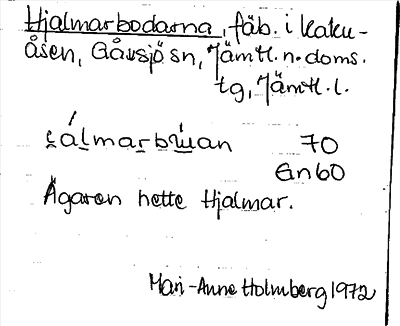 Hjalmarbodarna, fäb. i Kaku-
åsen, Gåxsjö sn, Jämtl. n. doms.
tg, Jämtl. l.
70
En 60
Ägaren hette Hjalmar.
Mari-Anne Holmberg 1972